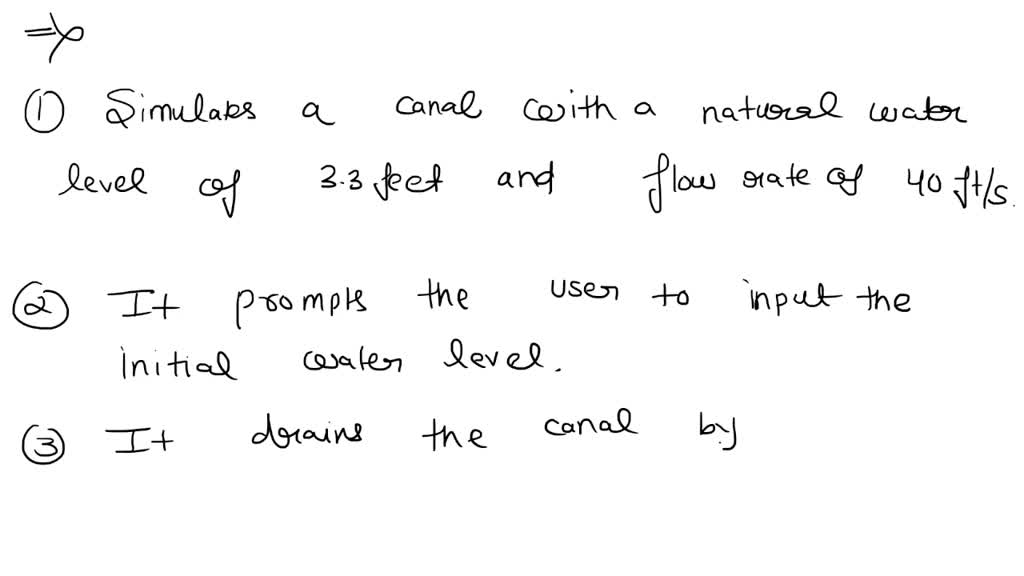 ⇒
① Simulates a canal with a natural water
level of 3.3 feet and flow rate of 40 ft/s.
② It prompts the user to input the
initial water level.
③ It drains the canal by